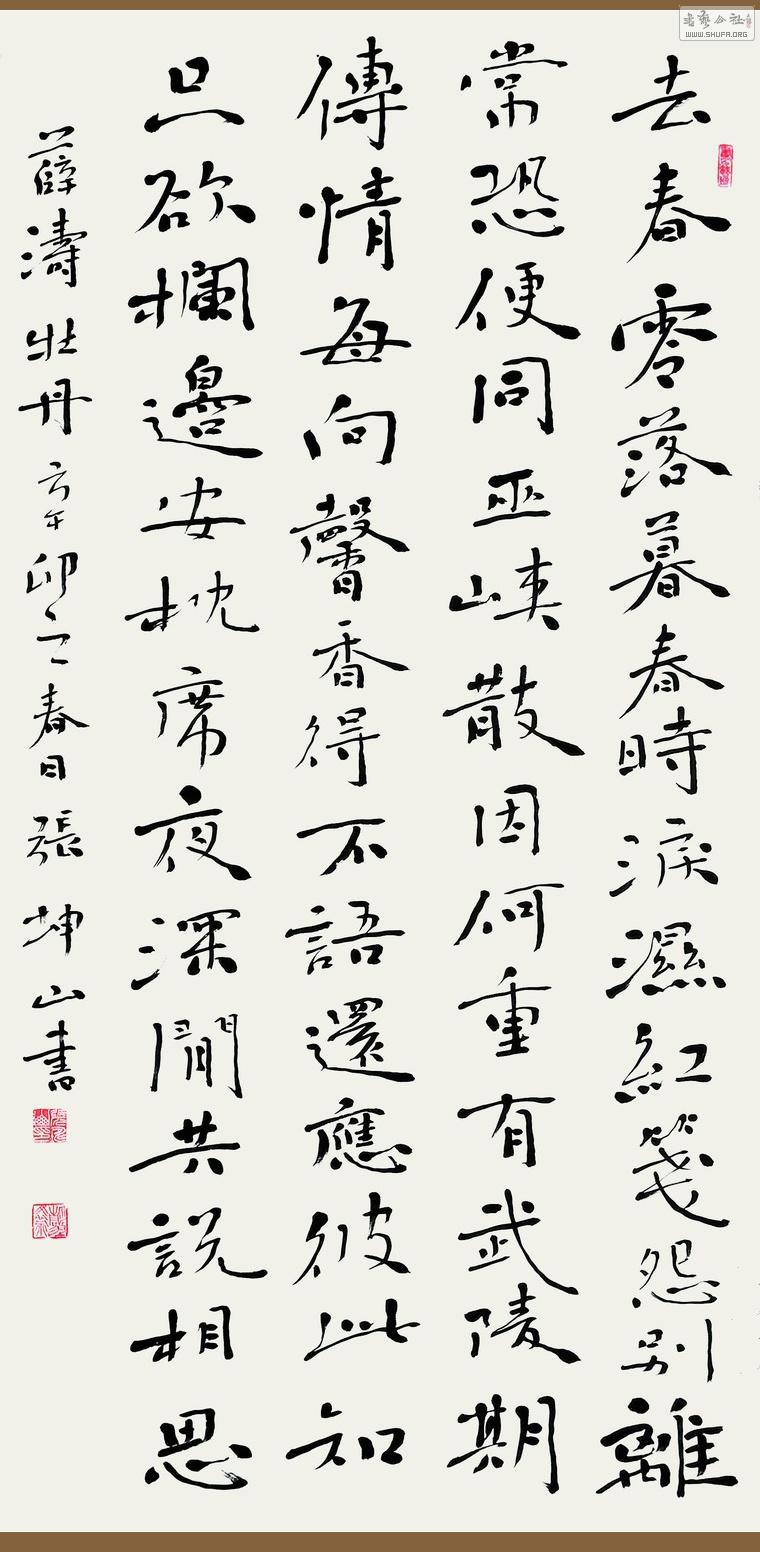 去春零落暮春時淚濕紅箋怨別離
常恐便同巫峽散因何重有武陵期
傳情每向馨香得不語還應彼此知
只欲欄邊安枕席夜深閒共說相思
薛濤牡丹辛卯之春日張坤山書
書藝公社
WWW.SHUFA.ORG